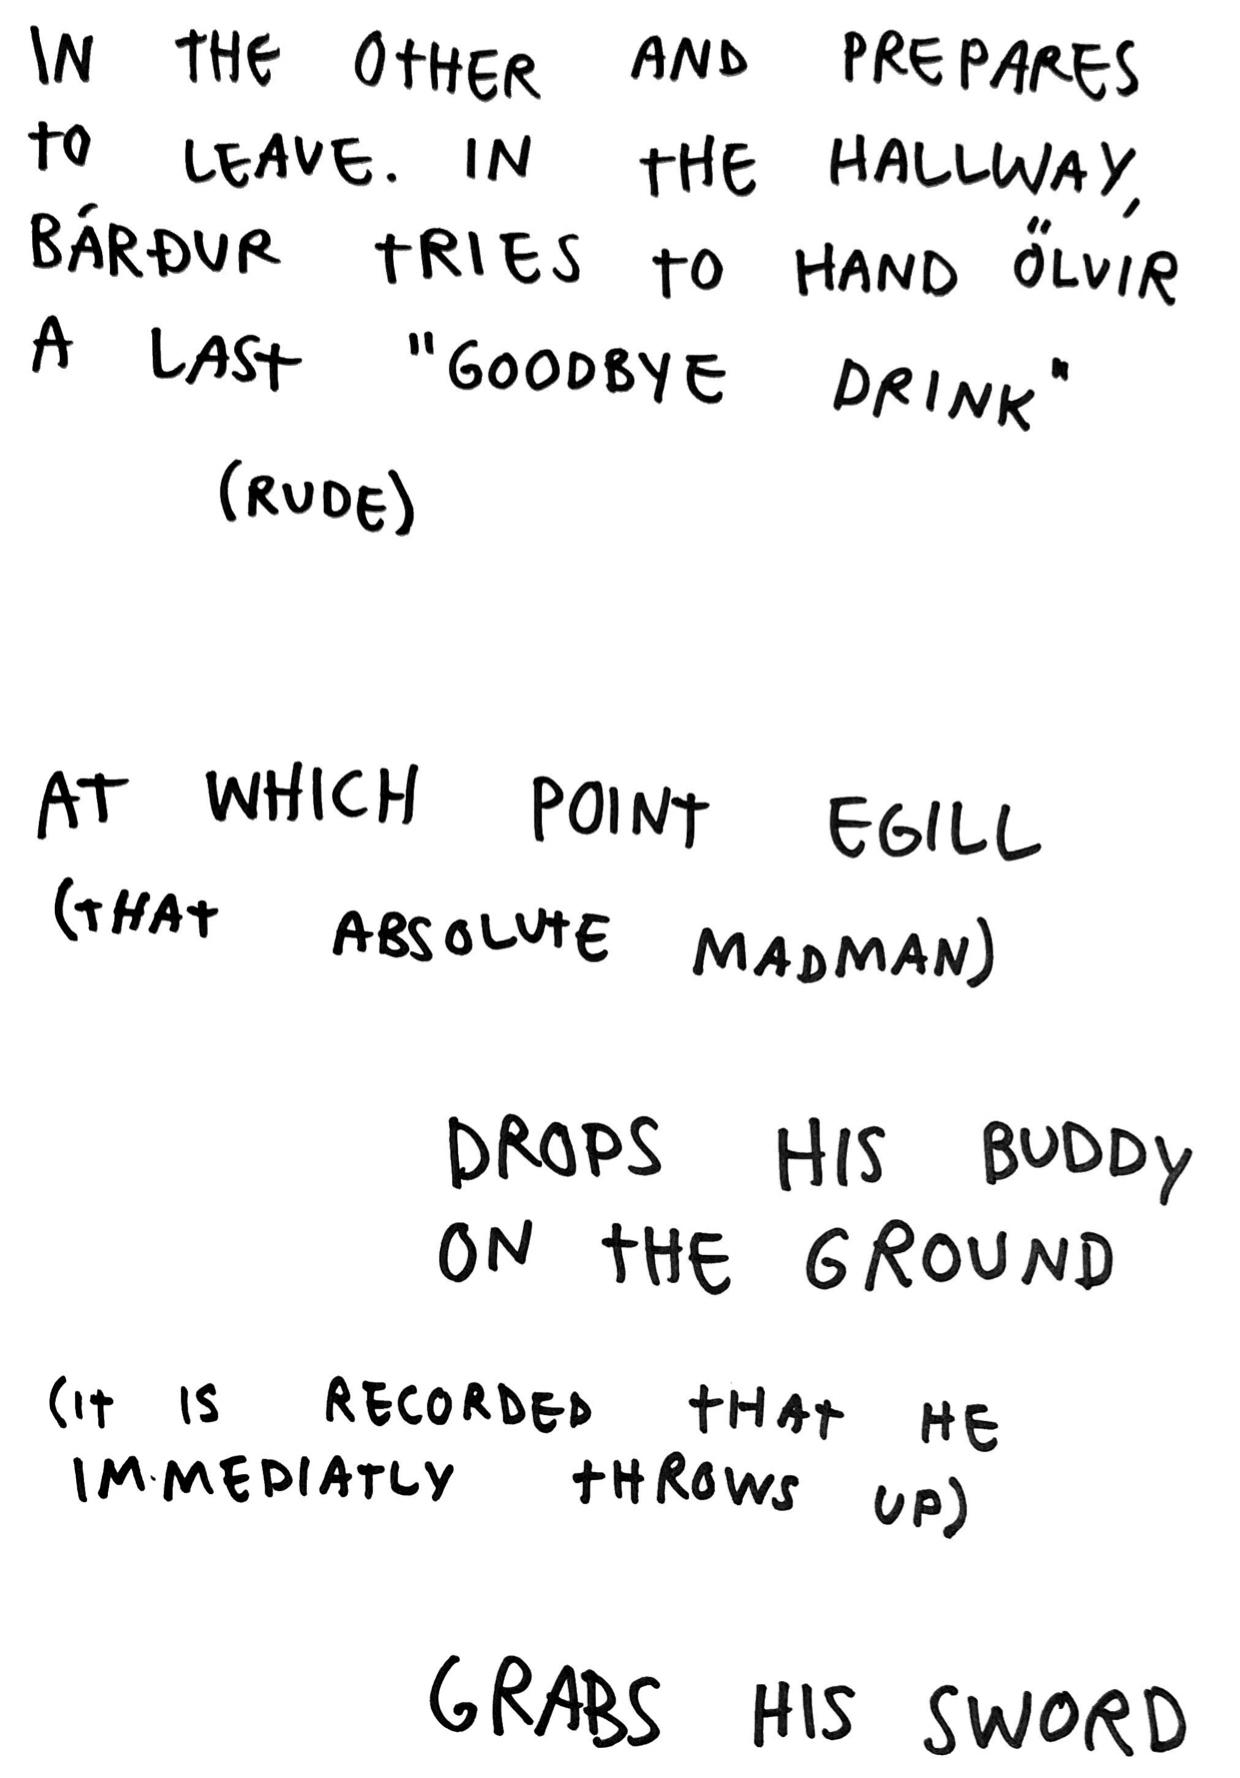 IN THE OTHER AND PREPARES
TO LEAVE. IN THE HALLWAY,
BÁRÐUR TRIES TO HAND ÖLVIR
A LAST "GOODBYE DRINK"
(RUDE)
AT WHICH POINT EGILL
(THAT ABSOLUTE MADMAN)
DROPS HIS BUDDY
ON THE GROUND
(IT IS RECORDED THAT HE
IMMEDIATLY THROWS UP)
GRABS HIS SWORD